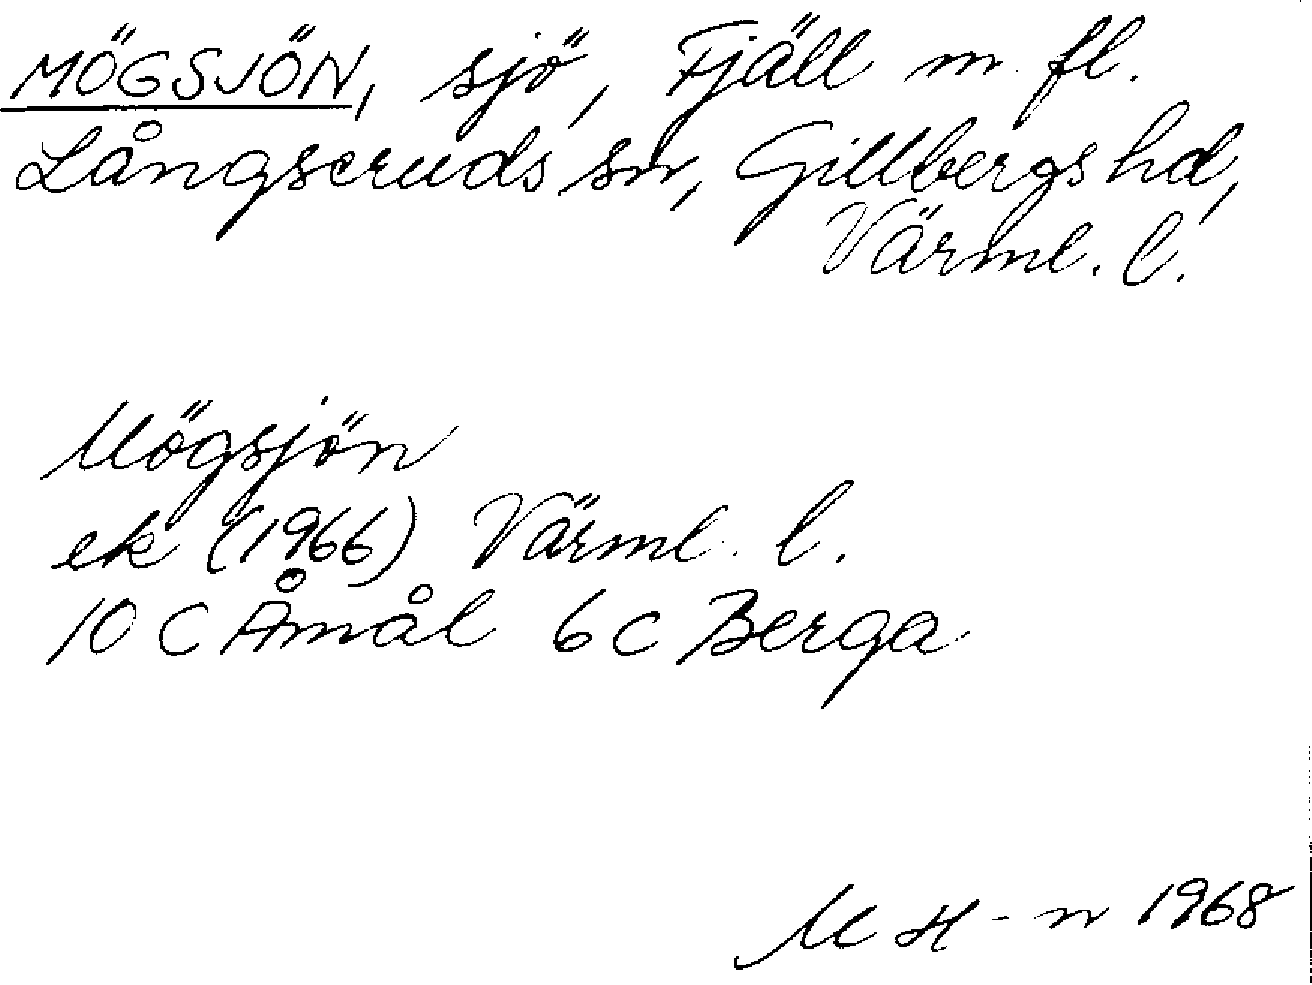 MÖGSJÖN, sjö, Fjäll m. fl.
Långseruds sn, Gillbergs hd,
Värml. l.
Mögsjön
ek (1966) Värml. l.
10 C Åmål 6 c Berga
M H-n 1968